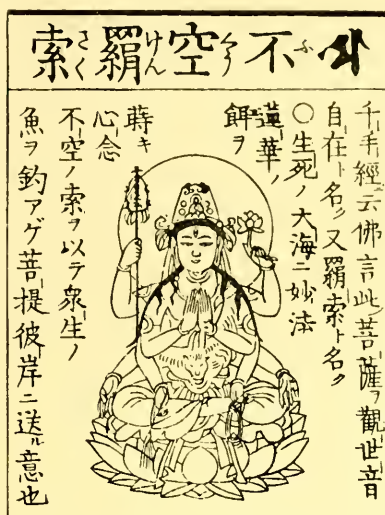 不空羂索
ふくうけんさく
千手經云佛言此菩薩ヲ觀世音
自在ト名ク又羂索ト名ク
〇生死ノ大海ニ妙法
蓮華ノ
餌ヲ
蒔キ
心念
不空ノ索ヲ以テ衆生ノ
魚ヲ釣アゲ菩提彼岸ニ送ル意也